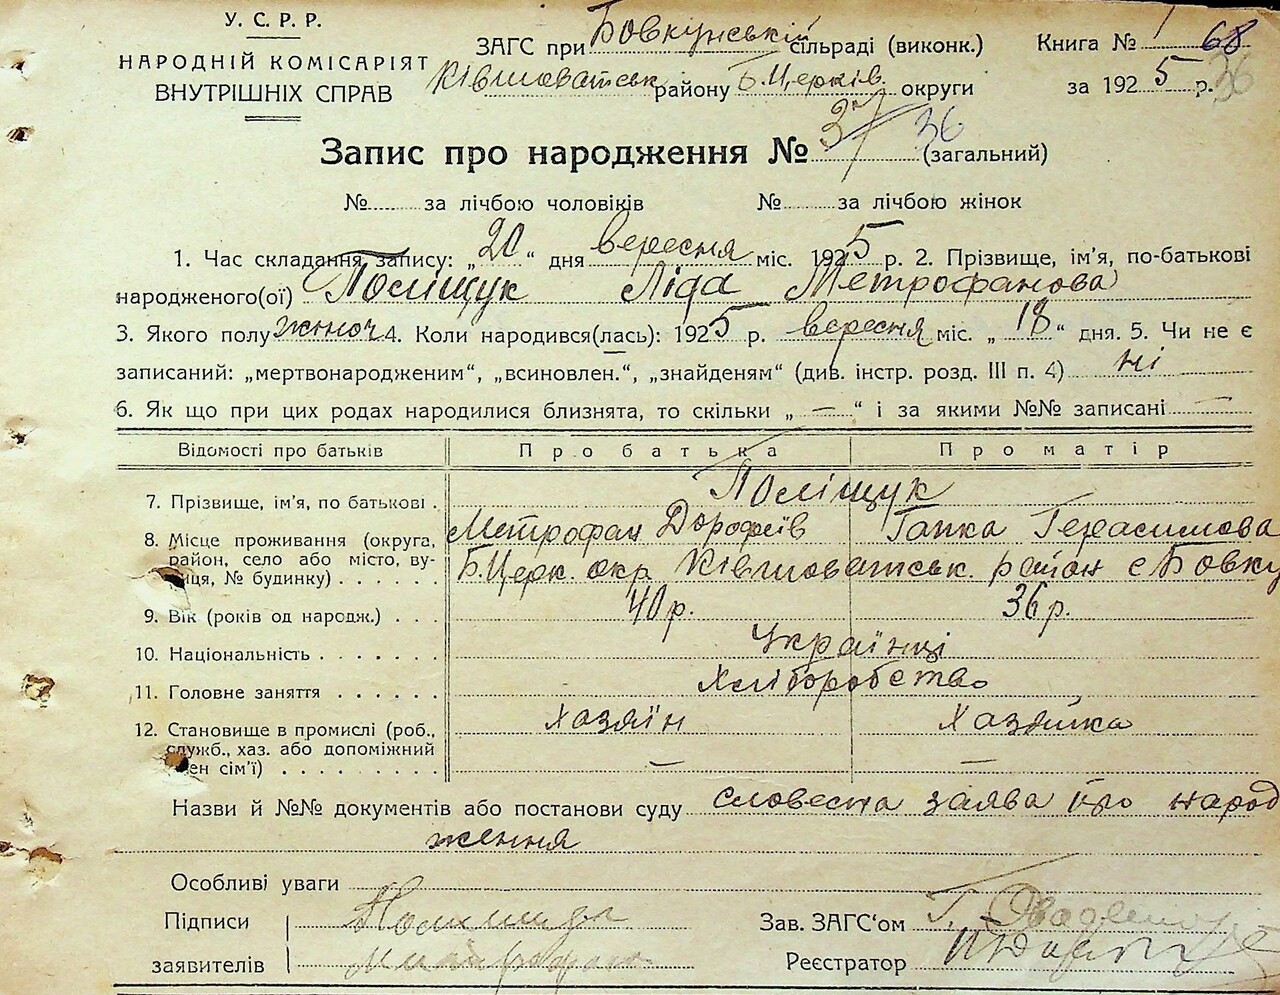 У. С. Р. Р.
НАРОДНІЙ КОМІСАРІЯТ
ВНУТРІШНІХ СПРАВ
ЗАГС при Бовкунській сільраді (виконк.) Книга № 1 68
Ківшоватськ району Б. Церків. округи за 1925 р. 36
Запис про народження № 37 36 (загальний)
№ ........ за лічбою чоловіків № ........ за лічбою жінок
1. Час складання запису: „20“ дня вересня міс. 1925 р. 2. Прізвище, ім'я, по-батькові
народженого(ої) Поліщук Ліда Метрофанова
3. Якого полу жіноч 4. Коли народився(лась): 1925 р. вересня міс. „18“ дня. 5. Чи не є
записаний: „мертвонародженим“, „всиновлен.“, „знайденям“ (див. інстр. розд. III п. 4) ні
6. Як що при цих родах народилися близнята, то скільки „ — “ і за якими №№ записані —
Відомості про батьків Про батька Про матір
7. Прізвище, ім'я, по батькові . Поліщук
Метрофан Дорофеїв Гапка Герасимова
8. Місце проживання (округа,
район, село або місто, ву-
лиця, № будинку) . . . . . Б.Церк. окр. Ківшоватськ. район с Бовку
9. Вік (років од народж.) . . . 40 р. 36 р.
10. Національність . . . . . . Українці
11. Головне заняття . . . . . . Хліборобство
12. Становище в промислі (роб., хазяїн Хазяйка
служб., хаз. або допоміжний
член сім'ї) . . . . . . . . . — —
Назви й №№ документів або постанови суду словесна заява про народ
ження
Особливі уваги
Підписи Зав. ЗАГС'ом Г.
заявителів Реєстратор